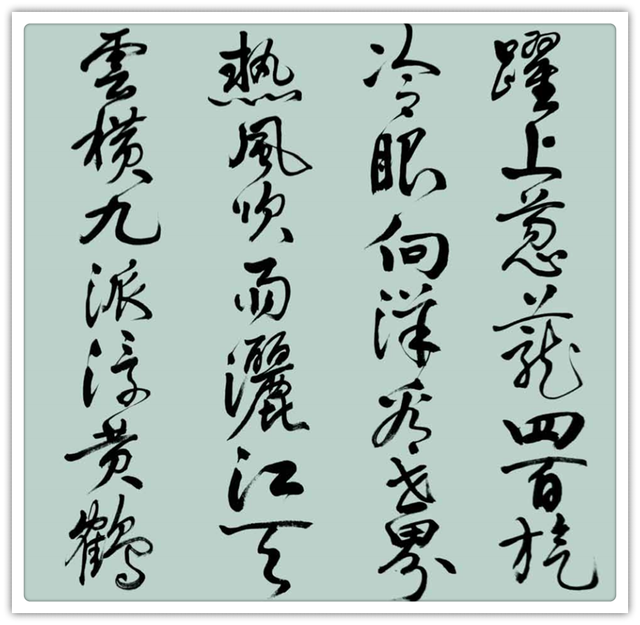 躍上葱蘢四百旋
冷眼向洋看世界
熱風吹雨灑江天
雲橫九派浮黄鶴